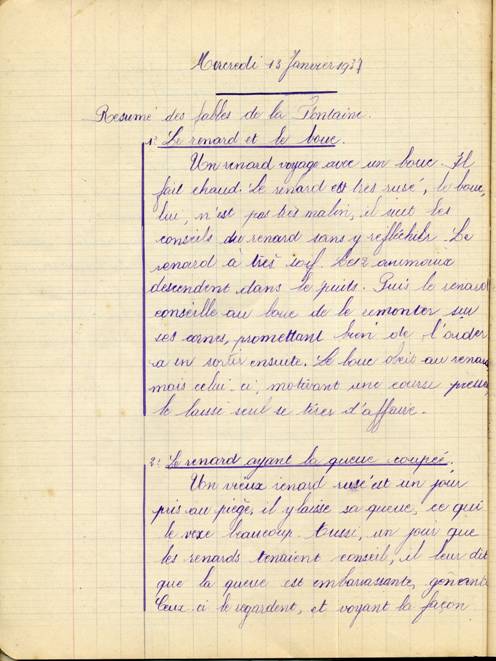 Mercredi 13 Janvier 1937
Resumé des fables de la Fontaine.
1º Le renard et le bouc.
Un renard voyage avec un bouc. Il
fait chaud. Le renard est très rusé, le bouc,
lui, n'est pas très malin, il suit les
conseils du renard sans y réfléchir. Le
renard a très soif. Les 2 animaux
descendent dans le puits. Puis le renard
conseille au bouc de le remonter sur
ses cornes, promettant bien de l'aider
a en sortir ensuite. Le bouc obéit au renard
mais celui-ci, motivant une course pressée,
le laisse seul se tirer d'affaire.
2º Le renard ayant la queue coupée.
Un vieux renard rusé est un jour
pris au piège, il y laisse sa queue, ce qui
le vexe beaucoup. Aussi, un jour que
les renards tenaient conseil, il leur dit
que la queue est embarrassante, gênante.
Ceux-ci le regardent, et voyant la façon